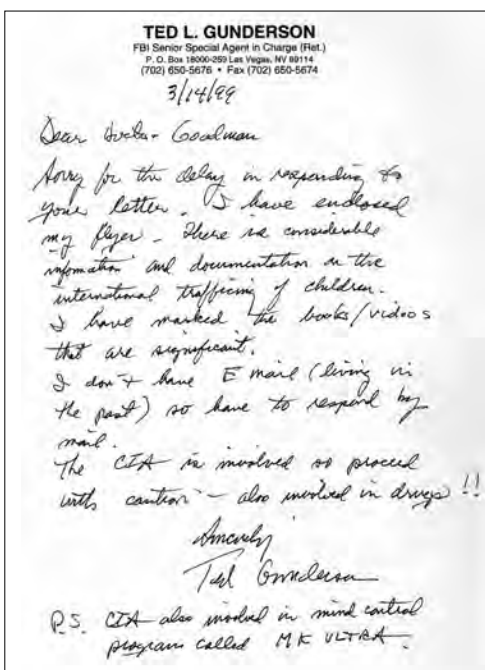 TED L. GUNDERSON
FBI Senior Special Agent in Charge (Ret.)
P. O. Box 18000-259 Las Vegas, NV 89114
(702) 650-5676 • Fax (702) 650-5674
3/14/99
Dear Goodman
Sorry for the delay in responding to
your letter. I have enclosed
my flyer. There is considerable
information and documentation on the
international trafficing of children.
I have marked the books/videos
that are significant.
I don't have E mail (living in
the past) so have to respond by
mail.
The CIA is involved so proceed
with caution - also involved in drugs!!
Sincerely
Ted Gunderson
P.S. CIA also involved in mind control
program called MK ULTRA.